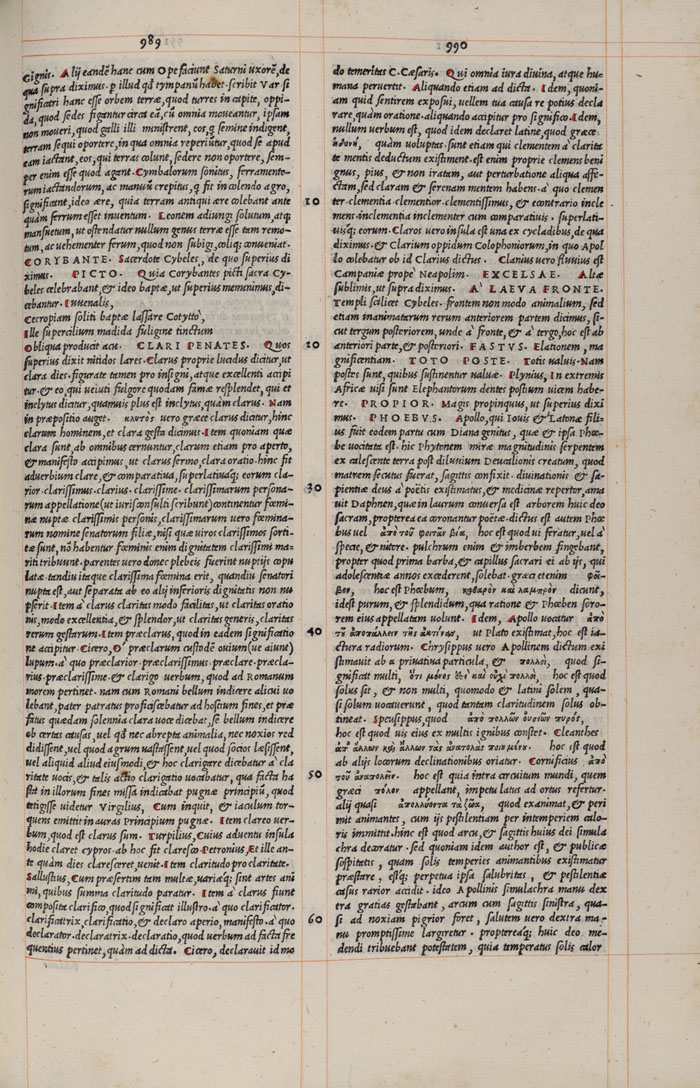 989
cignis. Alij eandē hanc cum Ope faciunt Saturni uxorē, de
qua supra diximus. p illud qd tympanū habet. scribit Varsi
gnificari hanc esse orbem terræ, quod turres in capite, oppi-
da, quod sedes figantur circa eā, cū omnia moueantur, ipsam
non moueri, quod galli illi ministrent, eos, q semine indigent,
terram sequi oportere, in qua omnia reperiūtur, quod se apud
eam iactant, eos, qui terras colunt, sedere non oportere, sem-
per enim esse quod agant. Cymbalorum sonitus, ferramento-
rum iactandorum, ac manuū crepitus, q fit in colendo agro,
significant, ideo ære, quia terram antiqui ære colebant ante
quàm ferrum esset inuentum. Leonem adiungi solutum, atq;
mansuetum, ut ostendatur nullum genus terræ esse tam remo-
tum, ac uehementer ferum, quod non subigi, coliq; conueniat.
CORYBANTE. Sacerdote Cybeles, de quo superius di
ximus. PICTO. Quia Corybantes picti sacra Cy-
beles celebrabant, & ideo baptæ, ut superius meminimus, di-
cebantur. Iuuenalis,
Cecropiam soliti baptæ lassare Cotytto,
Ille supercilium madida fuligine tinctum
Obliqua producit acu. CLARI PENATES. Quos
superius dixit nitidos lares. Clarus proprie lucidus dicitur, ut
clara dies. figurate tamen pro insigni, atque excellenti accipi
tur. & eo, qui ueluti fulgore quodam famæ resplendet, qui et
inclytus dicitur, quamuis plus est inclytus, quàm clarus. Nam
in præpositio auget. κλυτὸς uero græce clarus dicitur, hinc
clarum hominem, et clara gesta dicimus. Item quoniam quæ
clara sunt, ab omnibus cernuntur, clarum etiam pro aperto,
& manifesto accipimus, ut clarus sermo, clara oratio. hinc fit
aduerbium clare, & comparatiua, superlatiuaq; eorum cla-
rior. clarissimus. clarius. clarissime. clarissimarum persona-
rum appellatione (ut iurisconsulti scribunt) continentur fœmi-
næ nuptæ clarissimis personis, clarissimarum uero fœmina-
rum nomine senatorum filiæ, nisi quæ uiros clarissimos sorti-
tæ sunt, nō habentur fœminis enim dignitatem clarissimi ma-
riti tribuunt. parentes uero donec plebeis fuerint nuptijs copu
latæ. tandiu itaque clarissima fœmina erit, quandiu senatori
nupta est, aut separata ab eo alij inferioris dignitatis non nu
pserit. Item à clarus claritas modo facilitas, ut claritas oratio
nis, modo excellentia, & splendor, ut claritas generis, claritas
rerum gestarum. Item præclarus, quod in eadem significatio
ne accipitur. Cicero, O præclarum custodē ouium (ut aiunt)
lupum. à quo præclarior. præclarissimus. præclare. præcla-
rius. præclarissime. & clarigo uerbum, quod ad Romanum
morem pertinet. nam cum Romani bellum indicere alicui uo
lebant, pater patratus proficiscebatur ad hostium fines, et præ
fatus quædam solennia clara uoce dicebat, se bellum indicere
ob certas causas, uel qd nec abrepta animalia, nec noxios red
didissent, uel quod agrum uastassent, uel quod socios læsissent,
uel aliquid aliud eiusmodi, & hoc clarigare dicebatur à cla
ritate uocis, & talis actio clarigatio uocabatur, qua facta ha
sta in illorum fines missa indicabat pugnæ principiū, quod
tetigisse uidetur Virgilius, Cum inquit, & iaculum tor-
quens emittit in auras Principium pugnæ. Item clareo uer-
bum, quod est clarus sum. Turpilius, Cuius aduentu insula
hodie claret cypros. ab hoc fit claresco. Petronius, Et ille an-
te quàm dies claresceret, uenit. Item claritudo pro claritate.
Sallustius, Cum præsertim tam multæ, uariæq; sint artes ani
mi, quibus summa claritudo paratur. Item à clarus fiunt
composita clarifico, quod significat illustro. à quo clarificator.
clarificatrix, clarificatio, & declaro aperio, manifesto. à quo
declarator. declaratrix. declaratio, quod uerbum ad facta fre
quentius pertinet, quàm ad dicta. Cicero, declarauit id mo
10
20
30
40
50
60
990
do temeritas C. Cæsaris. Qui omnia iura diuina, atque hu-
mana peruertit. Aliquando etiam ad dicta. Idem, quoni-
am quid sentirem exposui, uellem tua causa re potius decla
rare, quàm oratione. aliquando accipitur pro significo. Idem,
nullum uerbum est, quod idem declaret latine, quod græce
ἡδονὴ, quàm uoluptas. sunt etiam qui clementem à clarita
te mentis deductum existiment. est enim proprie clemens beni
gnus, pius, & non iratam, aut perturbatione aliqua affe-
ctam, sed claram & serenam mentem habens. à quo clemen
ter. clementia. clementior. clementissimus, & econtrario incle
mens. inclementia inclementer cum comparatiuis. superlati-
uisq; eorum. Claros uero insula est una ex cycladibus, de qua
diximus. & Clarium oppidum Colophoniorum, in quo Apol
lo colebatur ob id Clarius dictus. Clanius uero fluuius est
Campaniæ prope Neapolim. EXCELSAE. Altæ
sublimis, ut supra diximus. A' LAEVA FRONTE.
Templi scilicet Cybeles. frontem non modo animalium, sed
etiam inanimatarum rerum anteriorem partem dicimus, si-
cut tergum posteriorem, unde à fronte, & à tergo, hoc est ab
anteriori parte, & posteriori. FASTVS. Elationem, ma
gnificentiam. TOTO POSTE. Totis ualuis. Nam
postes sunt, quibus sustinentur ualuæ. Plynius, In extremis
Africæ uisi sunt Elephantorum dentes postium uicem habe-
re. PROPIOR. Magis propinquus, ut superius dixi
mus. PHOEBVS. Apollo, qui Iouis & Latonæ fili-
us fuit eodem partu cum Diana genitus, quæ & ipsa Phœ-
be uocitata est. hic Phytonem miræ magnitudinis serpentem
ex calescente terra post diluuium Deucalionis creatum, quod
matrem secutus fuerat, sagittis confixit. diuinationis & sa-
pientiæ deus à poëtis existimatus, & medicinæ repertor, ama
uit Daphnen, quæ in laurum conuersa est arborem huic deo
sacram, propterea ea coronantur poëtæ. dictus est autem Phœ
bus uel ἀπὸ τοῦ φοιτᾶν βίᾳ, hoc est quod ui feratur, uel à
specie, & nitore. pulchrum enim & imberbem fingebant,
propter quod prima barba, & capillus sacrari ei ab ijs, qui
adolescentiæ annos excederent, solebat. græci etenim φοῖ-
βον, hoc est Phœbum, καθαρὸν καὶ λαμπρὸν dicunt,
idest purum, & splendidum, qua ratione & Phœben soro-
rem eius appellatam uolunt. Idem, Apollo uocatur ἀπὸ
τῦ ἀποπάλλειν τὰς ἀκτίνας, ut Plato existimat, hoc est ia-
ctura radiorum. Chrysippus uero Apollinem dictum exi
stimauit ab a priuatiua particula, & πολλοὶ, quod si-
gnificat multi, ὅτι μόνος ἐστὶ καὶ οὐχὶ πολλοὶ, hoc est quod
solus sit, & non multi, quomodo & latini solem, qua-
si solum uocauerunt, quod tantam claritudinem solus ob-
tineat. Speusippus, quod ἀπὸ πολλῶν οὐσιῶν πυρὸς,
hoc est quod uis eius ex multis ignibus constet. Cleanthes
ἀπ' ἄλλων καὶ ἄλλων τὰς ἀνατολὰς ποιουμένου. hoc est quod
ab alijs locorum declinationibus oriatur. Cornificius ἀπὸ
τοῦ ἀναπολεῖν. hoc est quia intra circuitum mundi, quem
græci πόλον appellant, impetu latus ad ortus refertur.
alij quasi ἀπολλύοντα τὰ ζῶα, quod exanimat, & peri
mit animantes, cum ijs pestilentiam per intemperiem calo-
ris immittit. hinc est quod arcu, & sagittis huius dei simula
chra decoratur. sed quoniam idem author est, & publicæ
sospitatis, quam solis temperies animantibus existimatur
præstare, estq; perpetua ipsa salubritas, & pestilentiæ
casus rarior accidit. ideo Apollinis simulachra manu dex
tra gratias gestabant, arcum cum sagittis sinistra, qua-
si ad noxiam pigrior foret, salutem uero dextra ma-
nu promptissime largiretur. proptereaq; huic deo me-
dendi tribuebant potestatem, quia temperatus solis calor